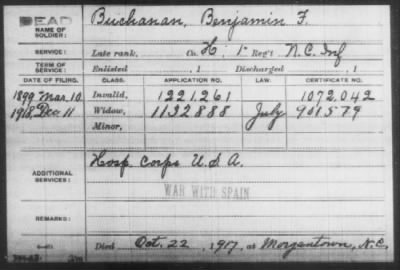 DEAD
NAME OF SOLDIER: Buchanan, Benjamin F.
SERVICE: Late rank, Co. H, 1 Reg't N.C. Inf
TERM OF SERVICE: Enlisted , 1 Discharged , 1
DATE OF FILING. CLASS. APPLICATION NO. LAW. CERTIFICATE NO.
1899 Mar. 10 Invalid, 1221261 1072,042
1918, Dec. 11 Widow, 1132888 July 901579
Minor,
ADDITIONAL SERVICES: Hosp. Corps U.S.A.
WAR WITH SPAIN
REMARKS:
Died Oct. 22, 1917, at Morganton, N.C.